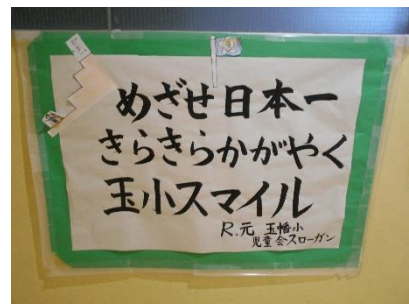 めざせ日本一
きらきらかがやく
玉小スマイル
R.元 玉幡小
児童会スローガン